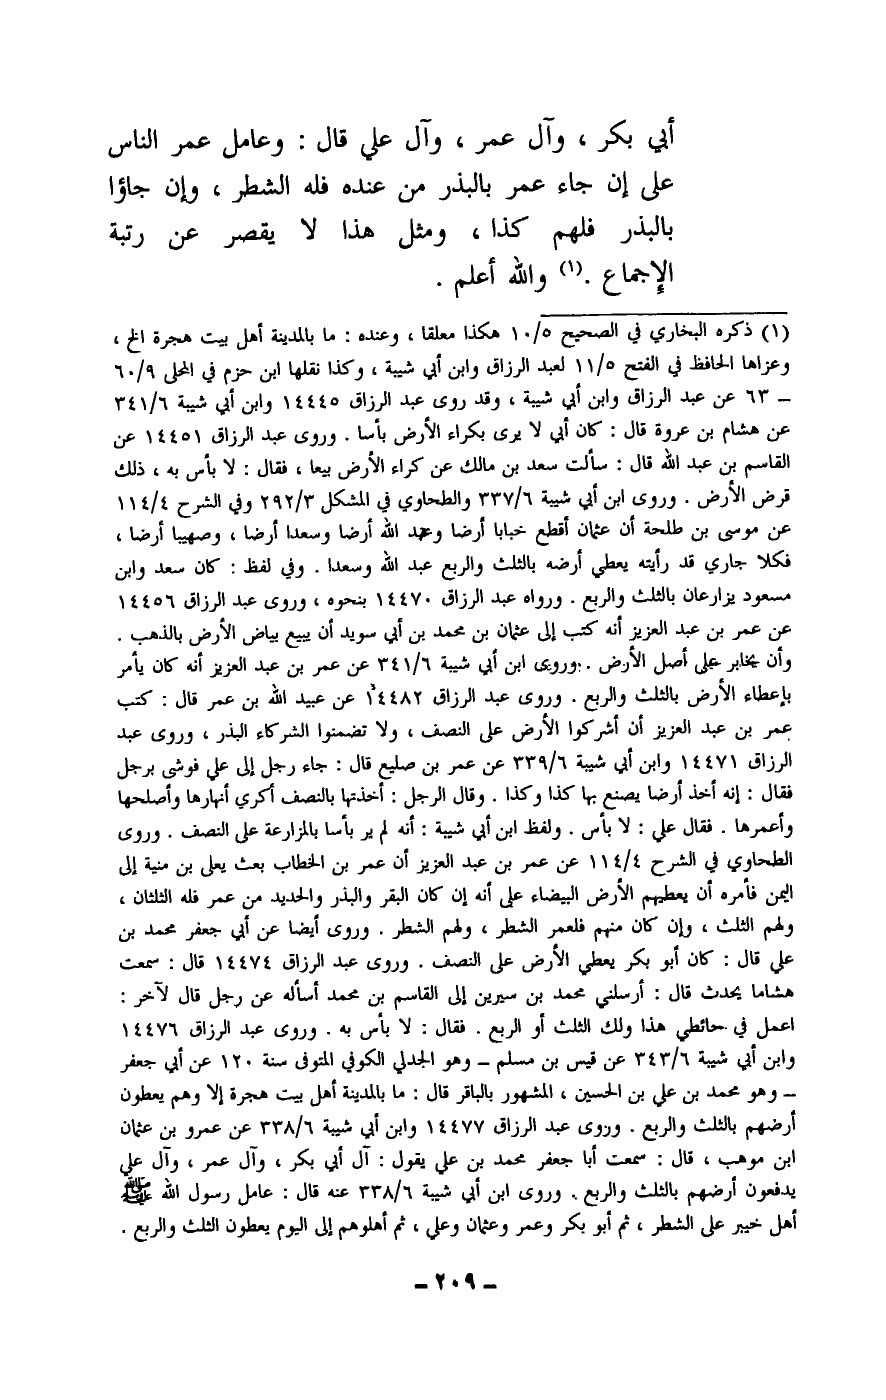 أبي بكر ، وآل عمر ، وآل علي قال : وعامل عمر الناس
على إن جاء عمر بالبذر من عنده فله الشطر ، وإن جاؤا
بالبذر فلهم كذا ، ومثل هذا لا يقصر عن رتبة
الإجماع .(١) والله أعلم .
(١) ذكره البخاري في الصحيح ١٠/٥ هكذا معلقا ، وعنده : ما بالمدينة أهل بيت هجرة الخ ،
وعزاها الحافظ في الفتح ١١/٥ لعبد الرزاق وابن أبي شيبة ، وكذا نقلها ابن حزم في المحلى ٦٠/٩
ــ ٦٣ عن عبد الرزاق وابن أبي شيبة ، وقد روى عبد الرزاق ١٤٤٤٥ وابن أبي شيبة ٣٤١/٦
عن هشام بن عروة قال : كان أبي لا يرى بكراء الأرض بأسا . وروى عبد الرزاق ١٤٤٥١ عن
القاسم بن عبد الله قال : سألت سعد بن مالك عن كراء الأرض بيعا ، فقال : لا بأس به ، ذلك
قرض الأرض . وروى ابن أبي شيبة ٣٣٧/٦ والطحاوي في المشكل ٢٩٢/٣ وفي الشرح ١١٤/٤
عن موسى بن طلحة أن عثمان أقطع خبابا أرضا وعبد الله أرضا وسعدا أرضا ، وصهيبا أرضا ،
فكلا جاري قد رأيته يعطي أرضه بالثلث والربع عبد الله وسعدا . وفي لفظ : كان سعد وابن
مسعود يزارعان بالثلث والربع . ورواه عبد الرزاق ١٤٤٧٠ بنحوه ، وروى عبد الرزاق ١٤٤٥٦
عن عمر بن عبد العزيز أنه كتب إلى عثمان بن محمد بن أبي سويد أن يبيع بياض الأرض بالذهب .
وأن يخابر على أصل الأرض . وروى ابن أبي شيبة ٣٤١/٦ عن عمر بن عبد العزيز أنه كان يأمر
بإعطاء الأرض بالثلث والربع . وروى عبد الرزاق ١٤٤٨٢ عن عبيد الله بن عمر قال : كتب
عمر بن عبد العزيز أن أشركوا الأرض على النصف ، ولا تضمنوا الشركاء البذر ، وروى عبد
الرزاق ١٤٤٧١ وابن أبي شيبة ٣٣٩/٦ عن عمر بن صليع قال : جاء رجل إلى علي فوشى برجل
فقال : إنه أخذ أرضا يصنع بها كذا وكذا . وقال الرجل : أخذتها بالنصف أكري أنهارها وأصلحها
وأعمرها . فقال علي : لا بأس . ولفظ ابن أبي شيبة : أنه لم ير بأسا بالمزارعة على النصف . وروى
الطحاوي في الشرح ١١٤/٤ عن عمر بن عبد العزيز أن عمر بن الخطاب بعث يعلى بن منية إلى
اليمن فأمره أن يعطيهم الأرض البيضاء على أنه إن كان البقر والبذر والحديد من عمر فله الثلثان ،
ولهم الثلث ، وإن كان منهم فلعمر الشطر ، ولهم الشطر . وروى أيضا عن أبي جعفر محمد بن
علي قال : كان أبو بكر يعطي الأرض على النصف . وروى عبد الرزاق ١٤٤٧٤ قال : سمعت
هشاما يحدث قال : أرسلني محمد بن سيرين إلى القاسم بن محمد أسأله عن رجل قال لآخر :
اعمل في حائطي هذا ولك الثلث أو الربع . فقال : لا بأس به . وروى عبد الرزاق ١٤٤٧٦
وابن أبي شيبة ٣٤٣/٦ عن قيس بن مسلم ــ وهو الجدلي الكوفي المتوفى سنة ١٢٠ عن أبي جعفر
ــ وهو محمد بن علي بن الحسين ، المشهور بالباقر قال : ما بالمدينة أهل بيت هجرة إلا وهم يعطون
أرضهم بالثلث والربع . وروى عبد الرزاق ١٤٤٧٧ وابن أبي شيبة ٣٣٨/٦ عن عمرو بن عثمان
ابن موهب ، قال : سمعت أبا جعفر محمد بن علي يقول : آل أبي بكر ، وآل عمر ، وآل علي
يدفعون أرضهم بالثلث والربع . وروى ابن أبي شيبة ٣٣٨/٦ عنه قال : عامل رسول الله ﷺ
أهل خيبر على الشطر ، ثم أبو بكر وعمر وعثمان وعلي ، ثم أهلوهم إلى اليوم يعطون الثلث والربع .
ــ ٢٠٩ ــ